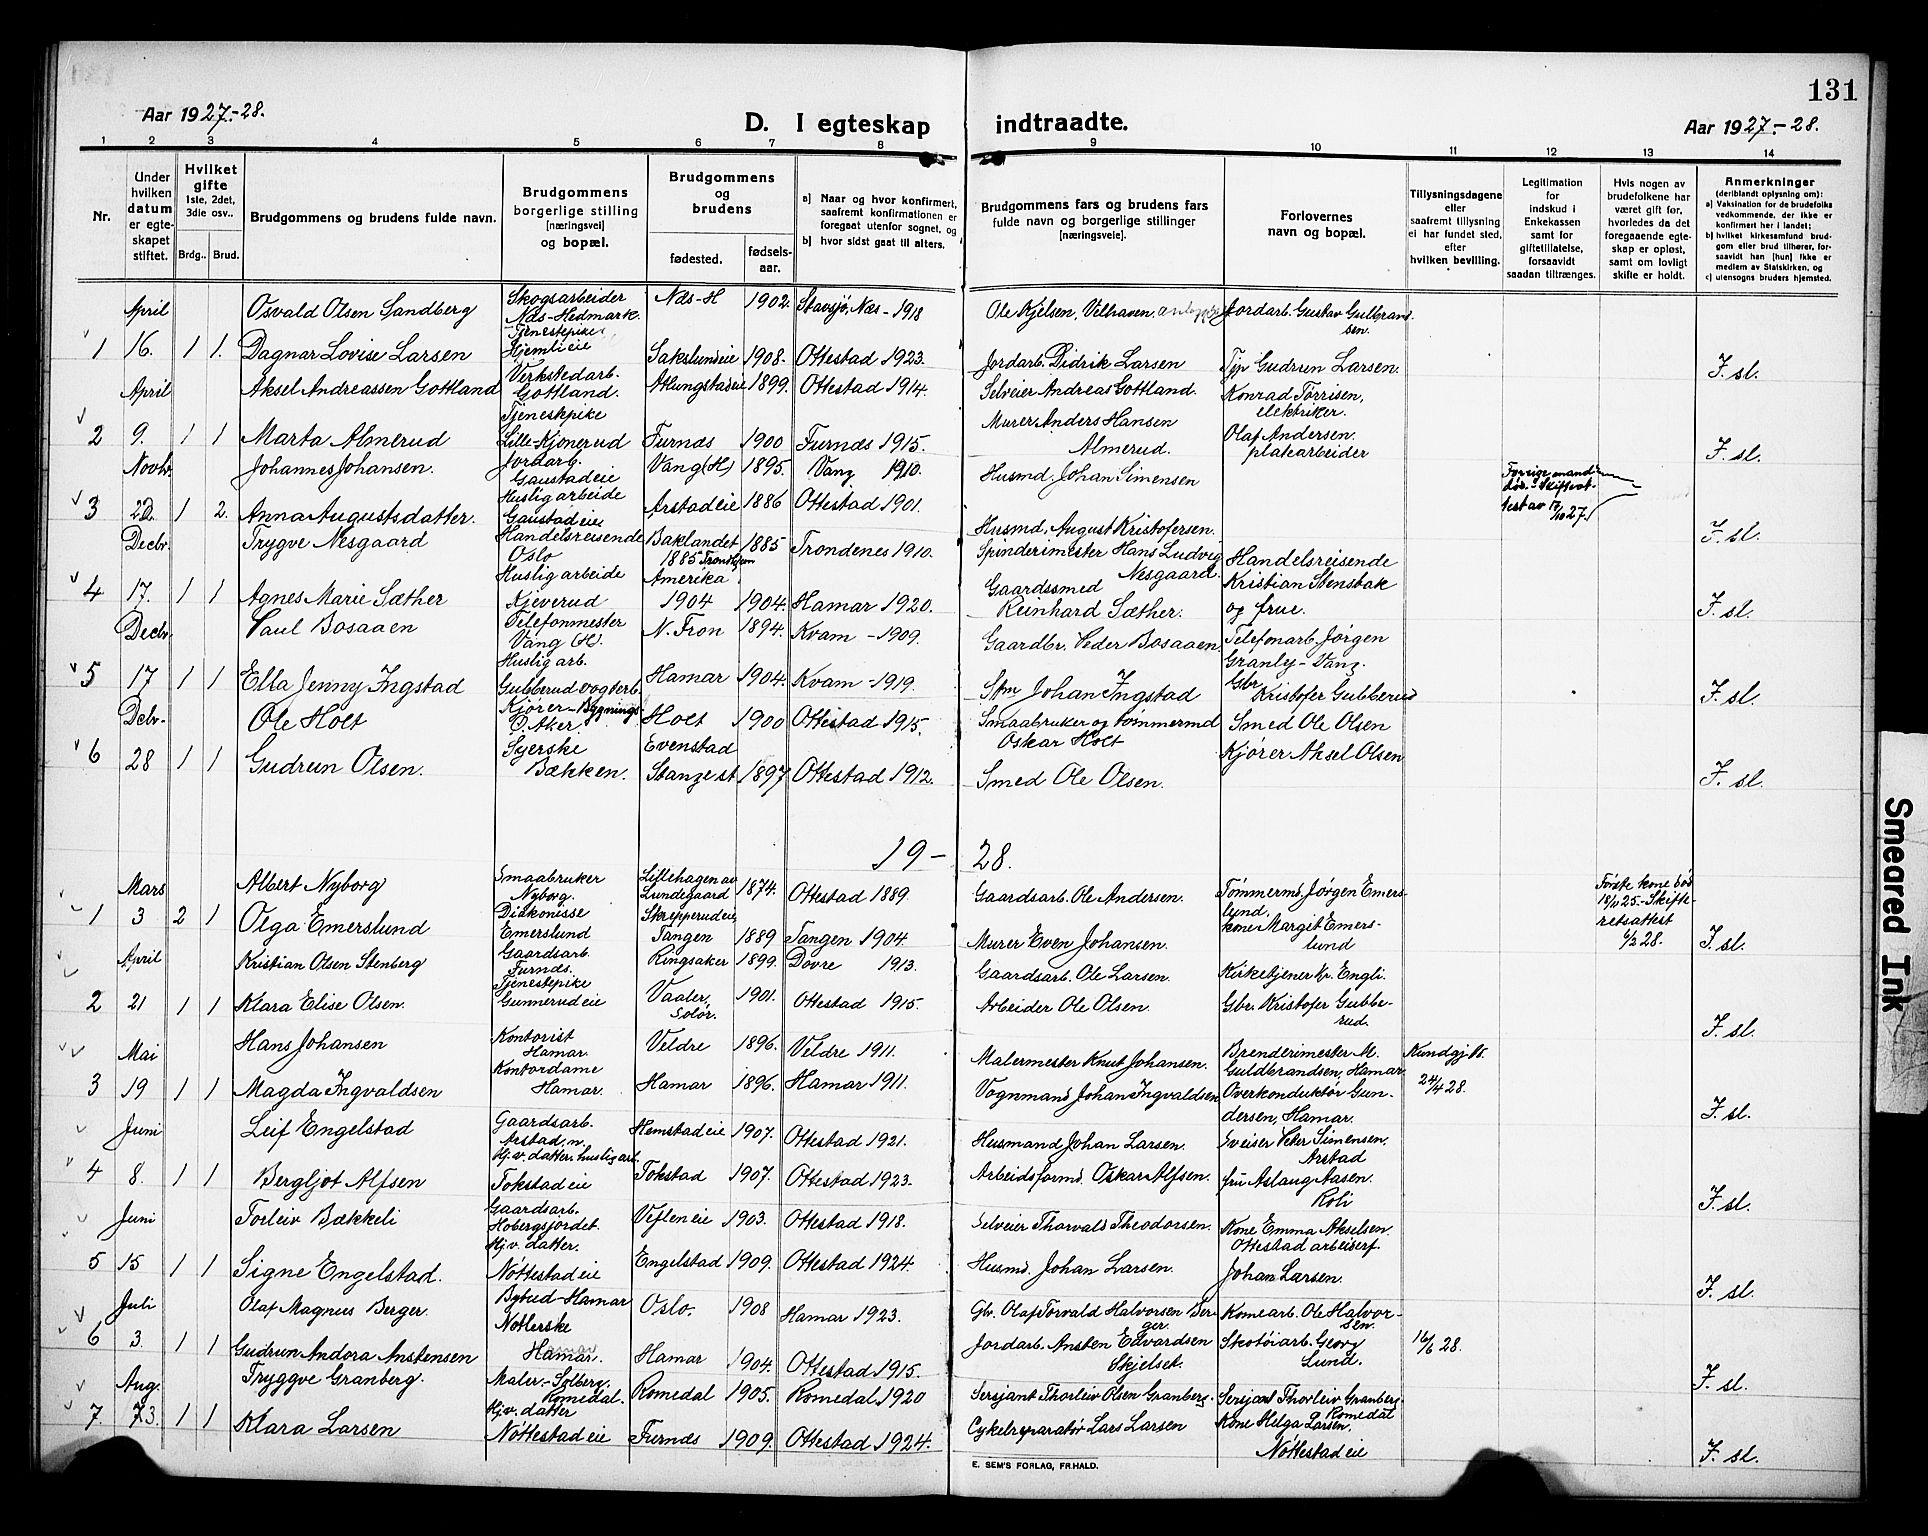 131
Aar 1927-28.
D. I egteskap indtraadte.
Aar 1927-28.
1 2 3 4 5 6 7 8 9 10 11 12 13 14
Nr.
Under hvilken datum er egteskapet stiftet.
Hvilket gifte 1ste, 2det, 3die osv..
Brdg.. Brud.
Brudgommens og brudens fulde navn.
Brudgommens borgerlige stilling [næringsvei] og bopæl.
Brudgommens og brudens
fødested. fødsels-aar.
a) Naar og hvor konfirmert, saafremt konfirmationen er foregaat utenfor sognet, og
b) hvor sidst gaat til alters.
Brudgommens fars og brudens fars fulde navn og borgerlige stillinger [næringsveie].
Forlovernes navn og bopæl.
Tillysningsdagene eller saafremt tillysning ei har fundet sted, efter hvilken bevilling.
Legitimation for indskud i Enkekassen samt for giftetillatelse, forsaavidt saadan tiltrænges.
Hvis nogen av brudefolkene har været gift før, hvorledes da det foregaaende egteskap er opløst, samt om lovligt skifte er holdt.
Anmerkninger (deriblandt oplysning om):
a) Vaksination for de brudefolks vedkommende, der ikke er konfirmert her i landet;
b) hvilket kirkesamfund brudgom eller brud tilhører, forsaavidt han [hun] ikke er medlem av Statskirken, og
c) utensogns bruders hjemsted.
April Osvald Olsen Sandberg Skogsarbeider Næs-Hedmark Næs-H 1902. Stavsjø, Næs - 1918 Ole Kjelsen, Velhaven, Jordarb. Gustav Gulbrandsen.
1 16. 1 1. Dagnar Lovise Larsen Tjenestepike Hjemlieie Sakslundeie 1908. Ottestad 1923. Jordarb. Didrik Larsen Tjp Gudrun Larsen. F. sl.
April Aksel Andreassen Gottland Verkstedarb. Gottland. Atlungstadeie 1899. Ottestad 1914. Selveier Andreas Gottland. Konrad Torrisen, elektriker.
2 9. 1 1 Marta Almerud Tjenestepike Lille-Kjonerud Furnæs 1900 Furnæs 1915. Murer Anders Hansen Almerud. Olaf Andersen platearbeider F. sl.
Novbr. Johannes Johansen. Jordarb. Gaustadeie Vang (H) 1895. Vang 1910. Husmd. Johan Simensen
3 22. 1 2. Anna Augustsdatter. Huslig arbeide Gaustadeie Arstadeie 1886 Ottestad 1901. Husmd. August Kristofersen. Forrige mand død. - Skifteattest av 17/10 27. F. sl.
Decbr. Trygve Nesgaard Handelsreisende Oslo Baklandet 1885 Trondhjem 1885 Trondenes 1910. Spinderimester Hans Ludvig Nesgaard Handelsreisende Kristian Stensbak og frue.
4 17. 1 1 Agnes Marie Sæther Huslig arbeide Kjeverud Amerika 1904 1904. Hamar 1920. Gaardssmed Reinhard Sæther. F. sl.
Decbr. Paul Bosaaen Telefonmester Vang (H). N. Fron 1894. Kvam - 1909. Gaardbr. Peder Bosaaen Telefonarb. Jørgen Granly - Vang.
5 17 1 1 Ella Jenny Ingstad Huslig arb. Gubberud vogterb. Hamar 1904. Kvam - 1919. Stm Johan Ingstad Gbr Kristofer Gubberud F. sl.
Decbr. Ole Holt Kjører - Bygnings Ø. Aker. Holt 1900 Ottestad 1915. Smaabruker og tømmermd Oskar Holt Smed Ole Olsen
6 28 1 1 Gudrun Olsen. Syerske Bækken. Evenstad Stange st 1897 Ottestad 1912. Smed Ole Olsen. Kjører Aksel Olsen F. sl.
19-28.
Mars Albert Nyborg Smaabruker Nyborg. Lillehagen av Lundegaard 1874. Ottestad 1889. Gaardsarb. Ole Andersen. Tømmermd. Jørgen Emerslund.
1 3 2 1 Olga Emerslund Diakonisse Emerslund Skrepperudeie Tangen 1889 Tangen 1904. Murer Even Johansen. kone Margit Emerslund Første kone død 18/1 25. - Skifteretsattest 6/2 28. F. sl.
April Kristian Olsen Stenberg Gaardsarb. Furnds. Ringsaker 1899. Dovre 1913. Gaardsarb. Ole Larsen. Kirketjener Kr. Engli.
2 21 1 1 Klara Elise Olsen. Tjenestepike Gunnerudeie Vaaler, Solør. 1901. Ottestad 1915. Arbeider Ole Olsen. Gbr. Kristofer Gubberud. F. sl.
Mai Hans Johansen Kontorist Hamar. Veldre 1896. Veldre 1911. Malermester Knut Johansen. Brenderimester M. Guldbrandsen, Hamar.
3 19 1 1 Magda Ingvaldsen Kontordame Hamar. Hamar 1896. Hamar 1911. Vognmand Johan Ingvaldsen Overkonduktør Gundersen, Hamar. Kundgj. 24/4 28. F. sl.
Juni Leif Engelstad Gaardsarb. Arstad, n. Hemstadeie 1907. Ottestad 1921. Husmand Johan Larsen. Sveiser Peter Simensen, Arstad
4 8. 1 1 Bergljot Alfsen Hj.v. datter. huslig arb. Tokstadeie Tokstad 1907. Ottestad 1923. Arbeidsformd. Oskar Alfsen. fru Aslaug Aasen. Roli F. sl.
Juni Torleiv Bækkeli Gaardsarb. Hobergsjordet. Veflen eie 1903. Ottestad 1918. Selveier Thorvald Theodorsen. Kone Emma Akselsen Ottestad arbeiderf.
5 15 1 1 Signe Engelstad. Hj.v. datter. Nøttestadeie Engelstad 1909. Ottestad 1924. Husmd. Johan Larsen. Johan Larsen. F. sl.
Juli Olaf Magnus Berger. Bybud-Hamar Oslo. 1908 Hamar 1923. Gbr. Olaf Torvald Halvorsen Berger. Komearb. Ole Halvorsen.
6 3. 1 1 Gudrun Andora Anstensen Noterske Hamar. Hamar 1904. Ottestad 1915. Jordarb. Ansten Edvardsen Skjelset. Skotøiarb. Georg Lund. 16/6 28. F. sl.
Aug. Tryggve Granberg. Maler. - Solberg, Romedal. Romedal 1905. Romedal 1920 Sersjant Thorleiv Olsen Granberg. Sersjant Thorleiv Granberg Romedal
7. 23. 1 1 Klara Larsen Hj.v. datter Nøttestadeie Furnds 1909. Ottestad 1924. Cykelreparatør Lars Larsen Kone Helga Larsen, Nøttestadeie F. sl.
E. SEM'S FORLAG, FR.HALD.
Smeared Ink